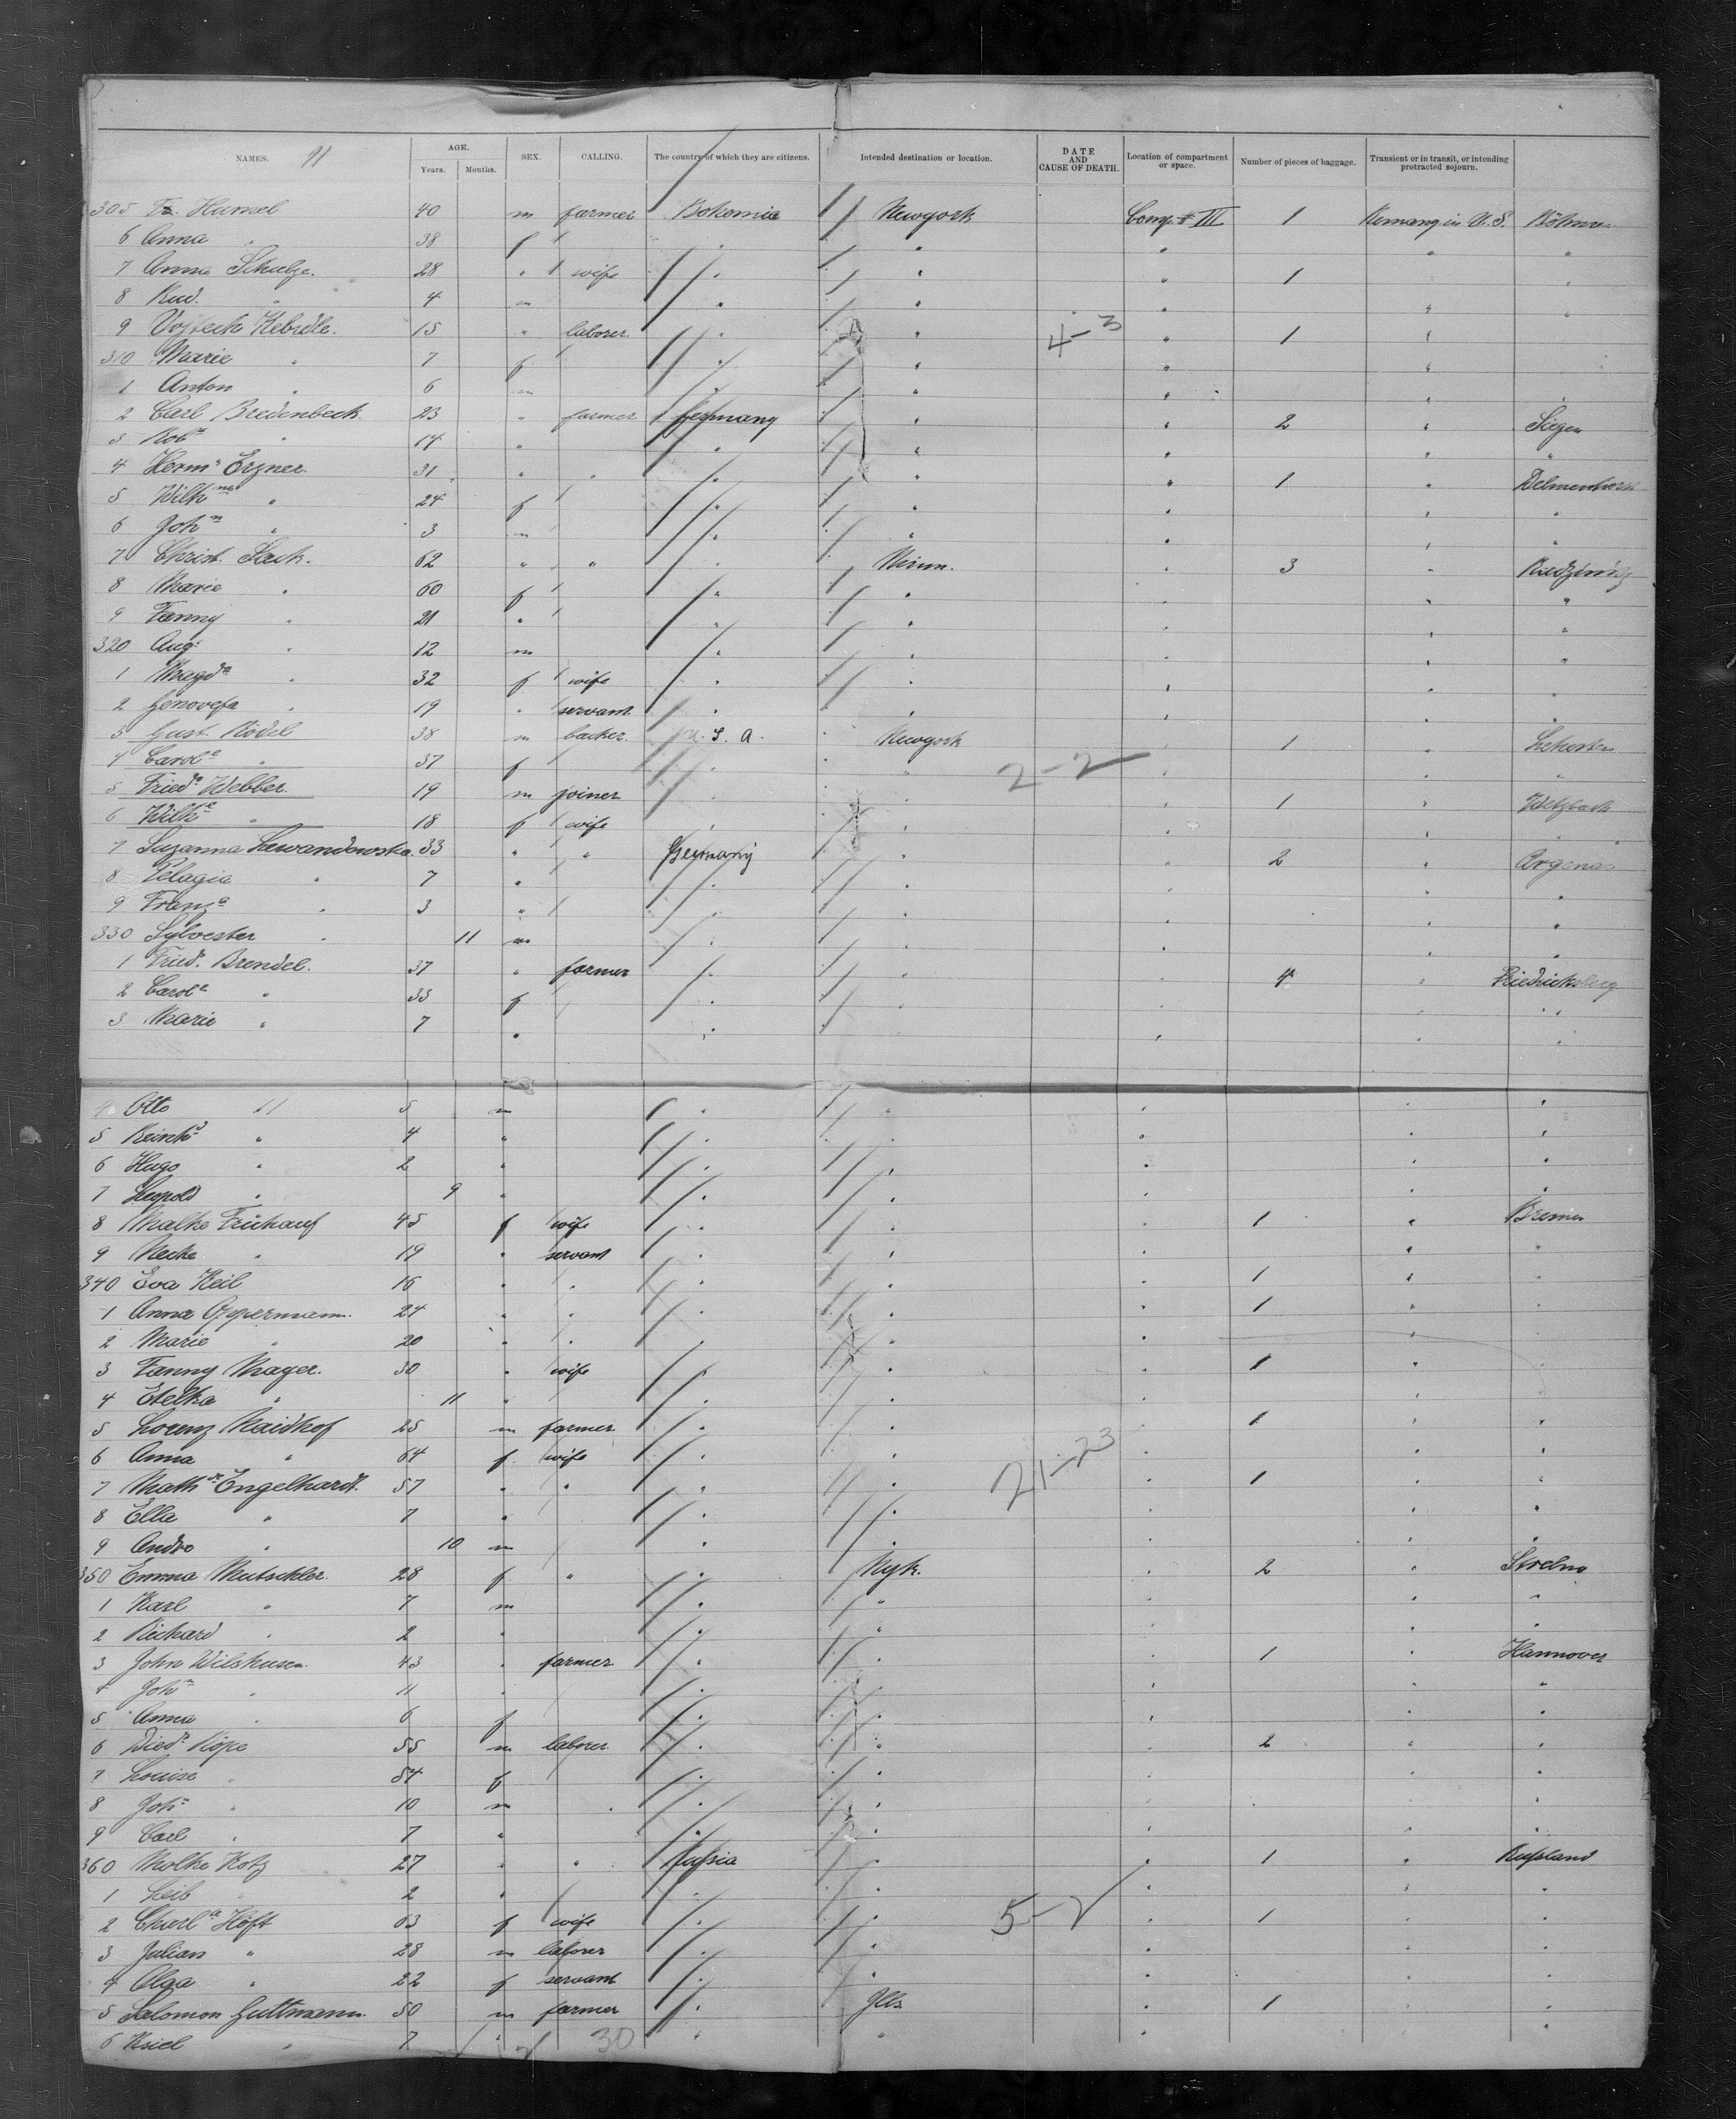 NAMES. 91 AGE. Years. Months. SEX. CALLING. The country of which they are citizens. Intended destination or location. DATE AND CAUSE OF DEATH. Location of compartment or space. Number of pieces of baggage. Transient or in transit, or intending protracted sojourn.
305 Fr. Humel 40 m farmer Bohemia Newyork Comp. # III 1 in U.S. Böhmen
6 Anna " 38 f " " " " "
7 Anna Schulze. 28 " wife " " " 1 "
8 Rud. " 4 m " " " " "
9 Vojtech 15 " laborer " " 4-3 " 1 "
310 Marie " 7 f " " " "
1 Anton " 6 m " " " " "
2 Carl Bredenbeck. 23 " farmer Germany " " 2 " Siegen
3 Robt " 14 " " " " " "
4 Herm. Erzner. 31 " " " " " 1 " Delmenhorst
5 Wilhme " 24 f " " " " "
6 Johm " 3 m " " " " "
7 Christ. 62 " " " Minn. " 3 "
8 Marie " 60 f " " " "
9 Fanny " 21 " " " " " "
320 Aug. " 12 m " " " " "
1 Magda " 32 f wife " " " " "
2 Genovefa " 19 " servant " " " " "
3 Gust. Rödel 38 m backer. U. S. A. Newyork " 1 "
4 Carole " 37 f " " 2-2 " " "
5 Friedr Webber. 19 m joiner " " " 1 "
6 Wilhe " 18 f wife " " " " "
7 Suzanna Lewandowska. 33 " " Germany " " 2 "
8 Pelagia " 7 " " " " " "
9 Franza " 3 " " " " " "
330 Sylvester " 11 m " " " " "
1 Friedr. Brendel. 37 " farmer " " " 4 " Friedrichsberg
2 Carola " 33 f " " " " "
3 Marie " 7 " " " " "
4 Otto 11 5 m " " " " "
5 Reinhd " 4 " " " " " "
6 Hugo " 2 " " " " " "
7 Leopold " 9 " " " " " "
8 Malke Frühauf 45 f wife " " " 1 " Bremen
9 Necke " 19 " servant " " " " "
340 Eva Keil 16 " " " " " 1 " "
1 Anna Oppermann. 24 " " " " " 1 " "
2 Marie " 20 " " " " " " "
3 Fanny Mayer. 30 " wife " " " 1 " "
4 Etelka " 11 " " " " " "
5 Lorenz Maidhof 25 m farmer " " " 1 " "
6 Anna " 64 f wife " " 21-23 " " "
7 Mathde Engelhardt. 57 " " " " " 1 " "
8 Ella " 7 " " " " " "
9 Andre " 10 m " " " " "
350 Emma Mutschler. 28 f " " Nyk. " 2 " Strelno
1 Karl " 7 m " " " " "
2 Richard " 2 " " " " " "
3 John Wilshusen 43 " farmer " " " 1 " Hannover
4 John " 11 " " " " " "
5 Anna " 6 f " " " " "
6 Diedr Köpe 55 m laborer " " " 2 " "
7 Louise " 54 f " " " " "
8 Joh. " 10 m " " " " "
9 Carl " 7 " " " " " "
360 Molke Kotz 27 " " Russia " " 1 " Russland
1 Leib " 2 " " " " " "
2 Charla Höft 63 f wife " " 5-2 " 1 " "
3 Julian " 28 m laborer " " " " "
4 Olga " 22 f servant " " " " "
5 Salomon Guttmann. 50 m farmer " Ills " 1 " "
6 Ksiel " 7 " 30 " " " "